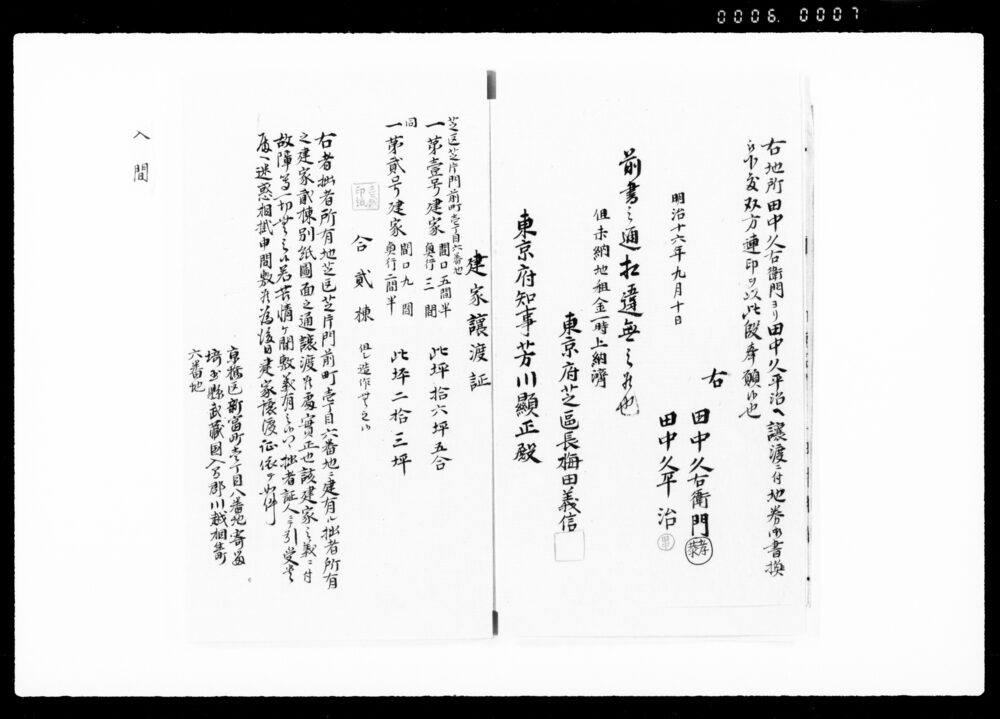 0006.0007
右地所田中久右衛門ヨリ田中久平治ヘ譲渡ニ付地券御書換
双方連印ヲ以此段奉願候也
明治十六年九月十日
右
田中久右衛門
田中久平治
前書之通相違無之候也
但未納地租金一時上納済
東京府芝區長梅田義信
東京府知事芳川顯正殿
建家譲渡証
芝区芝片門前町壱丁目六番地
一第壹号建家 間口五間半 奥行三間 此坪拾六坪五合
同
一第貳号建家 間口九間 奥行二間半 此坪二拾三坪
合貳棟 但シ造作無之候
右者拙者所有地芝区芝片門前町壱丁目六番地ニ建有ル拙者所有
之建家貳棟別紙圖面之通譲渡候處實正也該建家之義ニ付
故障等一切無之候若苦情ヶ間敷義有之候ハヽ拙者証人ニ而引受貴
殿ヘ迷惑相掛申間敷候為後日建家譲渡証依テ如件
京橋区新富町壱丁目八番地寄留
埼玉縣武蔵国入間郡川越相生町
六番地
入間